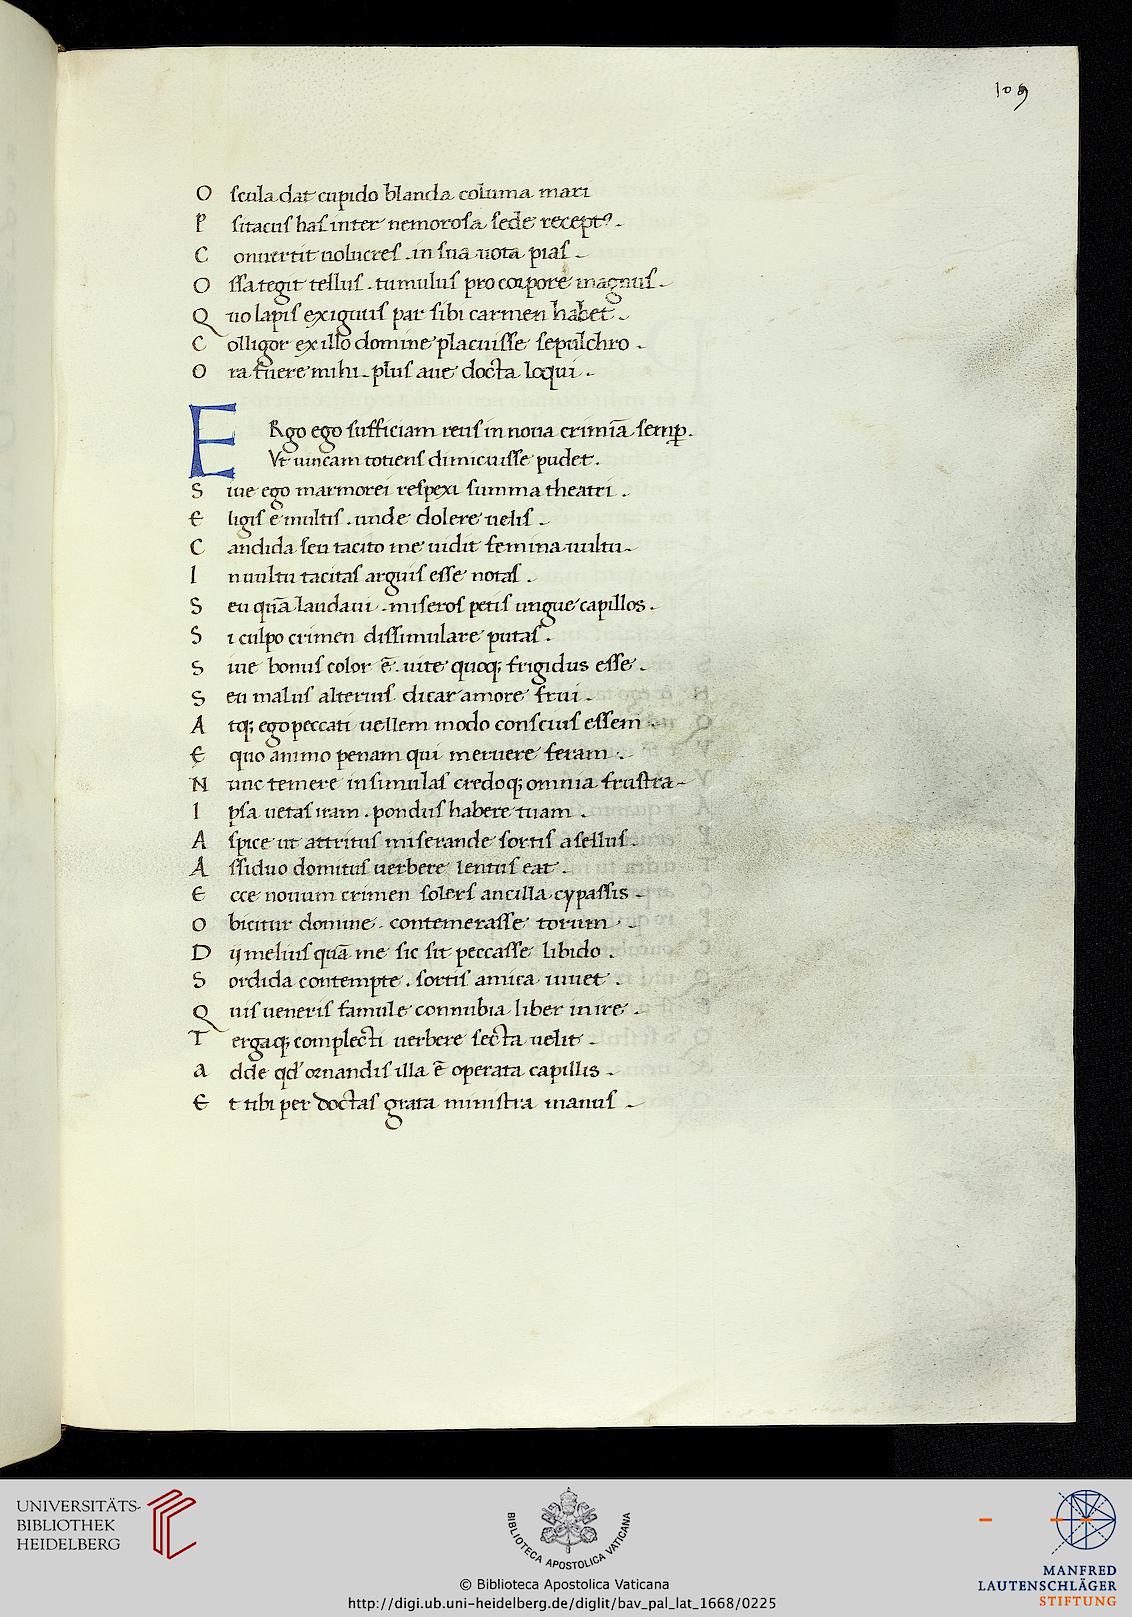 109
O scula dat cupido blanda columa mari
P sitacus has inter nemorosa sede recept⁹.
C onuertit uolucres. in sua uota pias.
O ssa tegit tellus. tumulus pro corpore magnus.
Q uo lapis exiguus par sibi carmen habet.
C olligor ex illo domine placuisse sepulchro.
O ra fuere mihi. plus aue docta loqui.
E Rgo ego sufficiam reus in noua crimīa semꝑ.
Vt uincam totiens dimicuisse pudet.
S iue ego marmorei respexi summa theatri.
E ligis e multis. unde dolere uelis.
C andida seu tacito me uidit femina uultu.
I n uultu tacitas arguis esse notas.
S eu quā laudaui. miseros petis ungue capillos.
S i culpo crimen dissimulare putas.
S iue bonus color ē. uite quoq; frigidus esse.
S eu malus alterius dicar amore frui.
A tq; ego peccati uellem modo conscius essem.
E quo animo penam qui meruere feram.
N unc temere insimulas credoq; omnia frustra.
I psa uetas iram. pondus habere tuam.
A spice ut attritus miserande sortis asellus.
A ssiduo domitus uerbere lentus eat.
E cce nouum crimen solers ancilla cypassis.
O bicitur domine. contemerasse torum.
D ij melius quā me sic sit peccasse libido.
S ordida contempte. sortis amica iuuet.
Q uis ueneris famule connubia liber inire.
T ergaq; complecti uerbere secta uelit.
a dde qd' ornandis illa ē operata capillis.
E t tibi per doctas grata ministra manus.
UNIVERSITÄTS-
BIBLIOTHEK
HEIDELBERG
BIBLIOTECA APOSTOLICA VATICANA
MANFRED
LAUTENSCHLÄGER
STIFTUNG
© Biblioteca Apostolica Vaticana
http://digi.ub.uni-heidelberg.de/diglit/bav_pal_lat_1668/0225